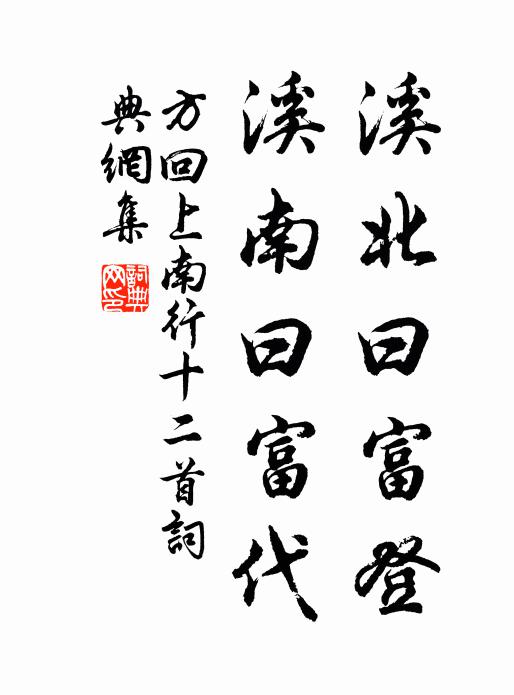 溪北曰富登
溪南曰富代
方回上南行十二首詞
典網集
詞典網印